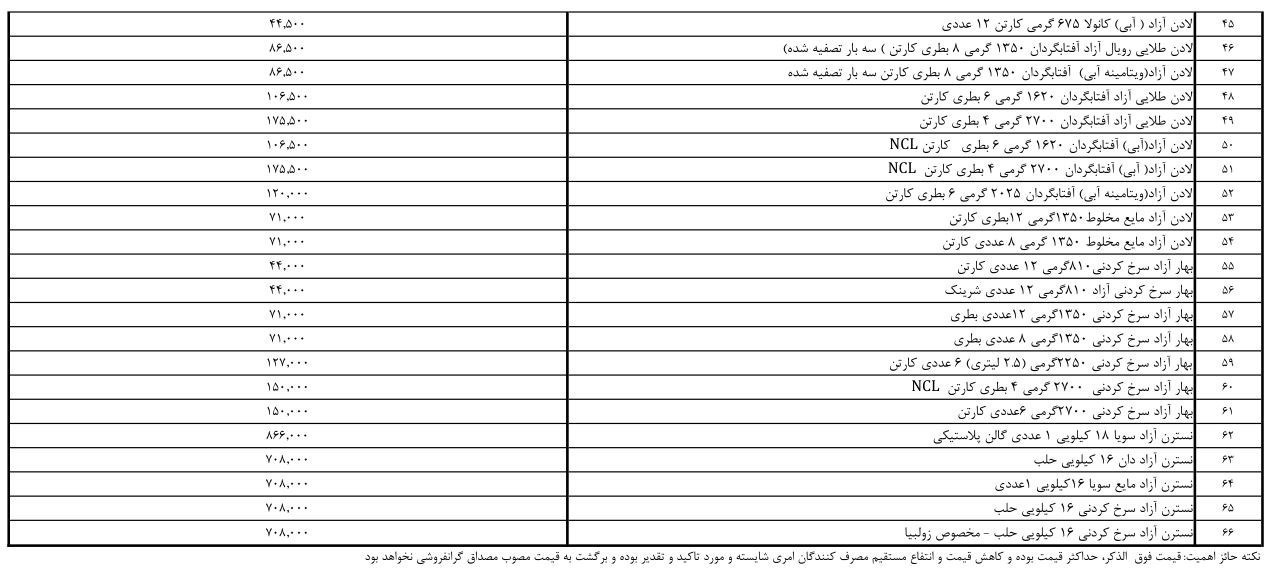 ۴۵ لادن آزاد ( آبی) کانولا ۶۷۵ گرمی کارتن ۱۲ عددی ۴۴,۵۰۰
۴۶ لادن طلایی رویال آزاد آفتابگردان ۱۳۵۰ گرمی ۸ بطری کارتن ) سه بار تصفیه شده) ۸۶,۵۰۰
۴۷ لادن آزاد(ویتامینه آبی) آفتابگردان ۱۳۵۰ گرمی ۸ بطری کارتن سه بار تصفیه شده ۸۶,۵۰۰
۴۸ لادن طلایی آزاد آفتابگردان ۱۶۲۰ گرمی ۶ بطری کارتن ۱۰۶,۵۰۰
۴۹ لادن طلایی آزاد آفتابگردان ۲۷۰۰ گرمی ۴ بطری کارتن ۱۷۵,۵۰۰
۵۰ لادن آزاد(آبی) آفتابگردان ۱۶۲۰ گرمی ۶ بطری کارتن NCL ۱۰۶,۵۰۰
۵۱ لادن آزاد( آبی) آفتابگردان ۲۷۰۰ گرمی ۴ بطری کارتن NCL ۱۷۵,۵۰۰
۵۲ لادن آزاد(ویتامینه آبی) آفتابگردان ۲۰۲۵ گرمی ۶ بطری کارتن ۱۲۰,۰۰۰
۵۳ لادن آزاد مایع مخلوط ۱۳۵۰گرمی ۱۲بطری کارتن ۷۱,۰۰۰
۵۴ لادن آزاد مایع مخلوط ۱۳۵۰ گرمی ۸ عددی کارتن ۷۱,۰۰۰
۵۵ بهار آزاد سرخ کردنی۸۱۰گرمی ۱۲ عددی کارتن ۴۴,۰۰۰
۵۶ بهار سرخ کردنی آزاد ۸۱۰گرمی ۱۲ عددی شرینک ۴۴,۰۰۰
۵۷ بهار آزاد سرخ کردنی ۱۳۵۰گرمی ۱۲عددی بطری ۷۱,۰۰۰
۵۸ بهار آزاد سرخ کردنی ۱۳۵۰گرمی ۸ عددی بطری ۷۱,۰۰۰
۵۹ بهار آزاد سرخ کردنی ۲۲۵۰گرمی (۲.۵ لیتری) ۶ عددی کارتن ۱۲۷,۰۰۰
۶۰ بهار آزاد سرخ کردنی ۲۷۰۰ گرمی ۴ بطری کارتن NCL ۱۵۰,۰۰۰
۶۱ بهار آزاد سرخ کردنی ۲۷۰۰گرمی ۶عددی کارتن ۱۵۰,۰۰۰
۶۲ نسترن آزاد سویا ۱۸ کیلویی ۱ عددی گالن پلاستیکی ۸۶۶,۰۰۰
۶۳ نسترن آزاد دان ۱۶ کیلویی حلب ۷۰۸,۰۰۰
۶۴ نسترن آزاد مایع سویا ۱۶کیلویی ۱عددی ۷۰۸,۰۰۰
۶۵ نسترن آزاد سرخ کردنی ۱۶ کیلویی حلب ۷۰۸,۰۰۰
۶۶ نسترن آزاد سرخ کردنی ۱۶ کیلویی حلب - مخصوص زولبیا ۷۰۸,۰۰۰
نکته حائز اهمیت: قیمت فوق الذکر، حداکثر قیمت بوده و کاهش قیمت و انتفاع مستقیم مصرف کنندگان امری شایسته و مورد تاکید و تقدیر بوده و برگشت به قیمت مصوب مصداق گرانفروشی نخواهد بود